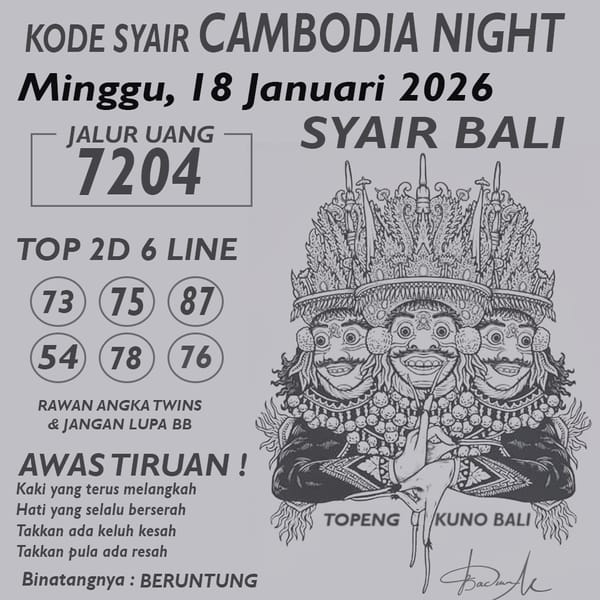 KODE SYAIR CAMBODIA NIGHT
Minggu, 18 Januari 2026
JALUR UANG
7204
SYAIR BALI
TOP 2D 6 LINE
73 75 87
54 78 76
RAWAN ANGKA TWINS
& JANGAN LUPA BB
AWAS TIRUAN !
Kaki yang terus melangkah
Hati yang selalu berserah
Takkan ada keluh kesah
Takkan pula ada resah
Binatangnya : BERUNTUNG
TOPENG KUNO BALI